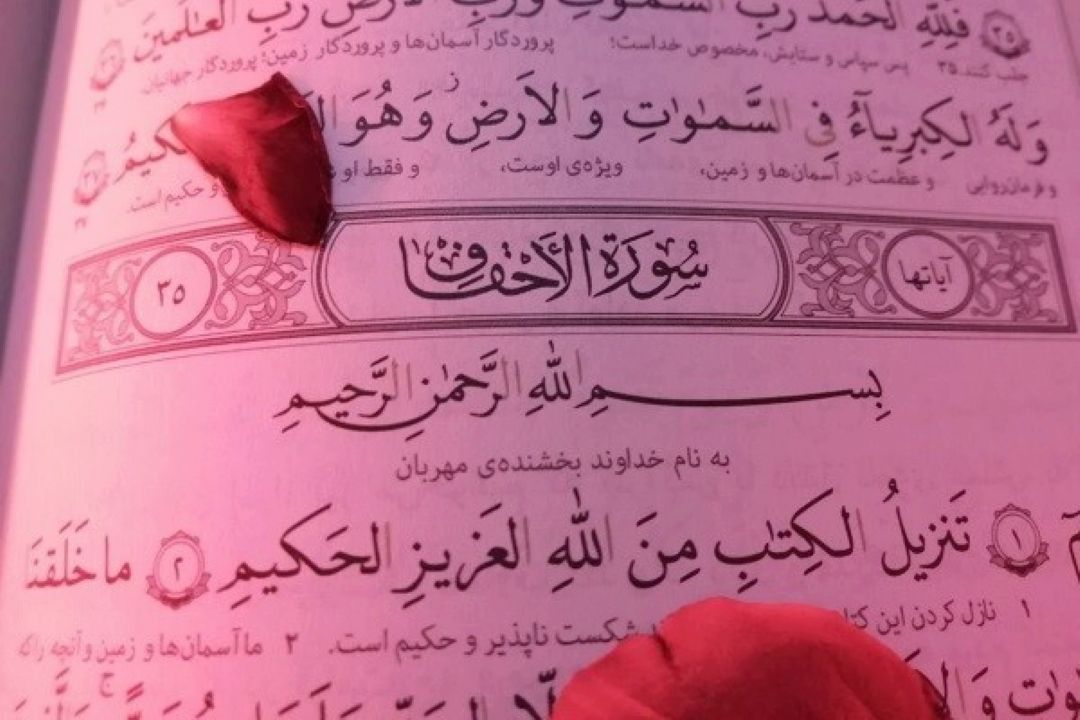 فَلِلَّهِ الحَمدُ رَبِّ السَّمـٰوٰتِ وَرَبِّ الاَرضِ رَبِّ العـٰلَمينَ
جلب کنند. ۳۵ پس سپاس و ستایش، مخصوص خداست؛ پروردگار آسمان‌ها و پروردگار زمین؛ پروردگار جهانیان
وَلَهُ الكِبرِياءُ فِی السَّمـٰوٰتِ وَ الاَرضِ وَهُوَ
و فرمان‌روایی و عظمت در آسمان‌ها و زمین، ویژه‌ی اوست، و فقط او و حکیم است.
آیاتها سُورَةُ الأَحْقَافِ ۳۵
بِسـمِ اللّٰهِ الرَّحمـٰنِ الرَّحیمِ
به نام خداوند بخشنده‌ی مهربان
۱ تَنزیلُ الكِتـٰبِ مِنَ اللّٰهِ العَزیزِ الحَكیمِ ۲ ما خَلَقنَا
۱ نازل کردن این شکست ناپذیر و حکیم است. ۲ ما آسمان‌ها و زمین و آنچه را که